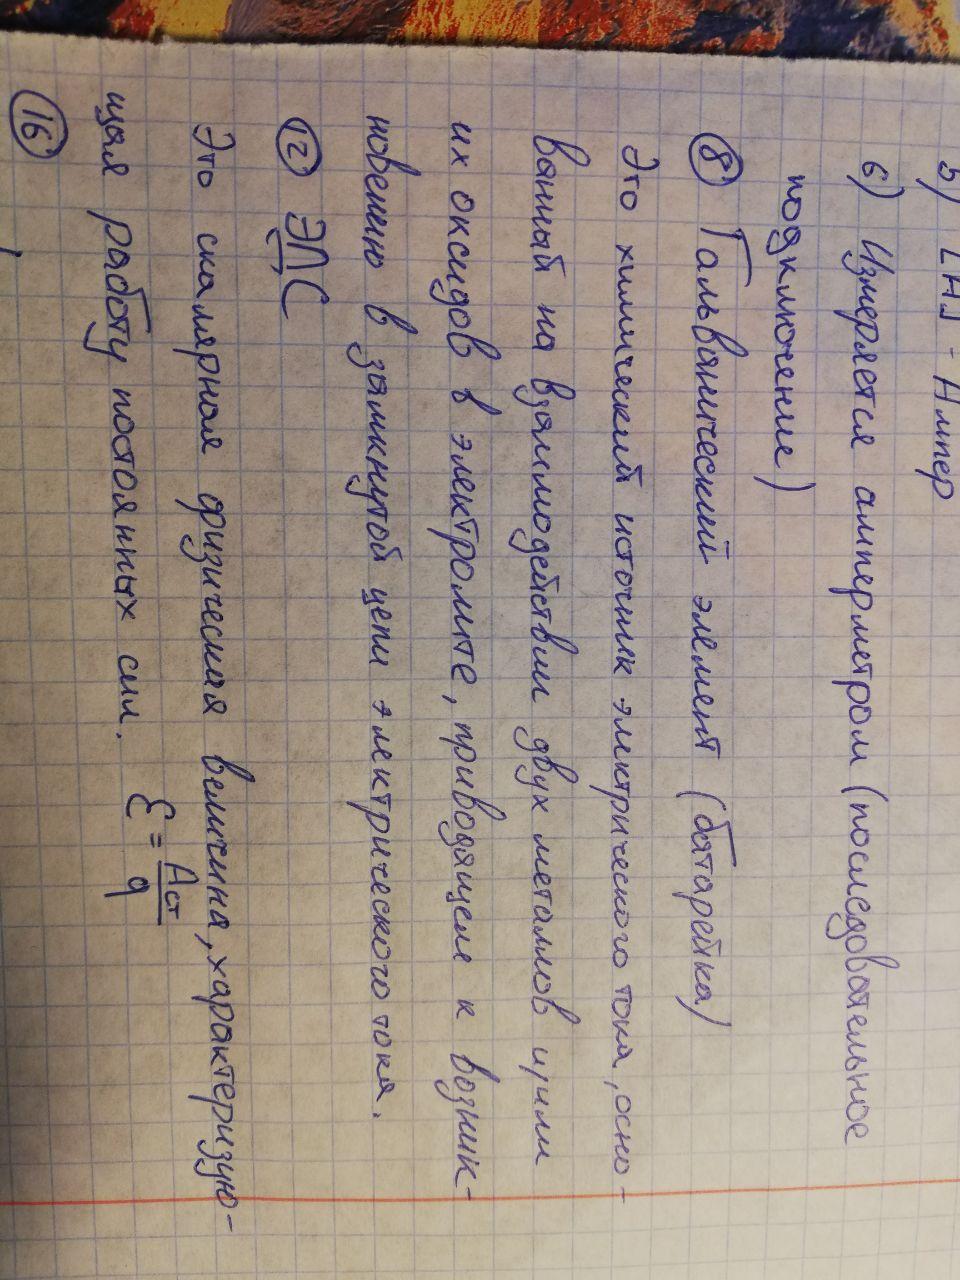 5) [A] - Ампер
6) Измеряется амперметром (последовательное
подключение)
8 Гальванический элемент (батарейка)
Это химический источник электрического тока, осно-
ванный на взаимодействии двух металлов и/или
их оксидов в электролите, приводящем к возник-
новению в замкнутой цепи электрического тока.
12 ЭДС
Это скалярная физическая величина, характеризую-
щая работу постоянных сил. ℰ = Aст/q
16